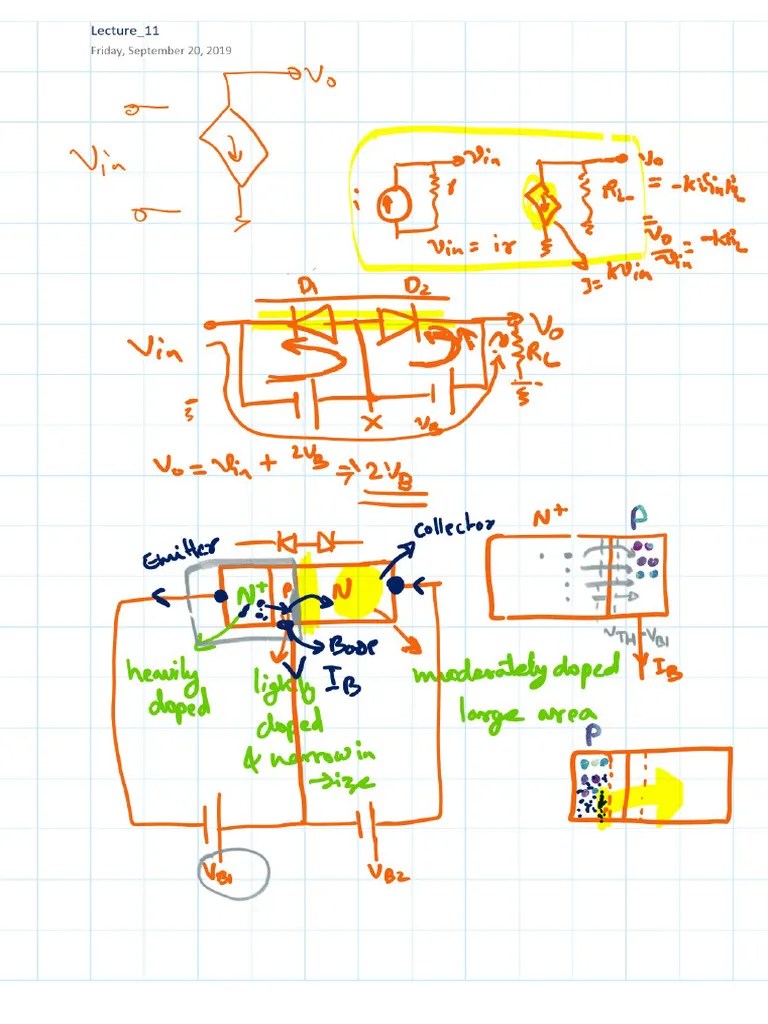 Lecture_11
Friday, September 20, 2019
Vo
Vin
i
r
Vin
Vin = ir
RL
Vo
I = kVin
D1
D2
Vin
Vo
RL
X
VB
Vo = Vin + 2VB ⇒ 2VB
Emitter
Collector
N+
P
N
IB
heavily
doped
lightly
doped
& narrow in
size
moderately doped
large area
VB1
VB2
N+
P
VTH - VB1
IB
P